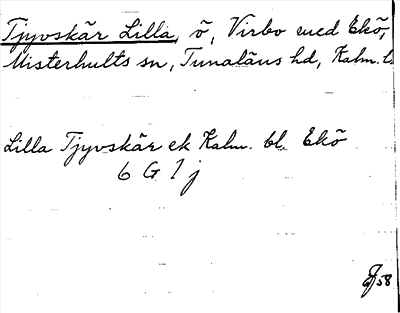 Tjyvskär Lilla, ö, Virbo med Ekö,
Misterhults sn, Tunaläns hd, Kalm. l.
Lilla Tjyvskär ek Kalm. bl. Ekö
6 G 7 j
58